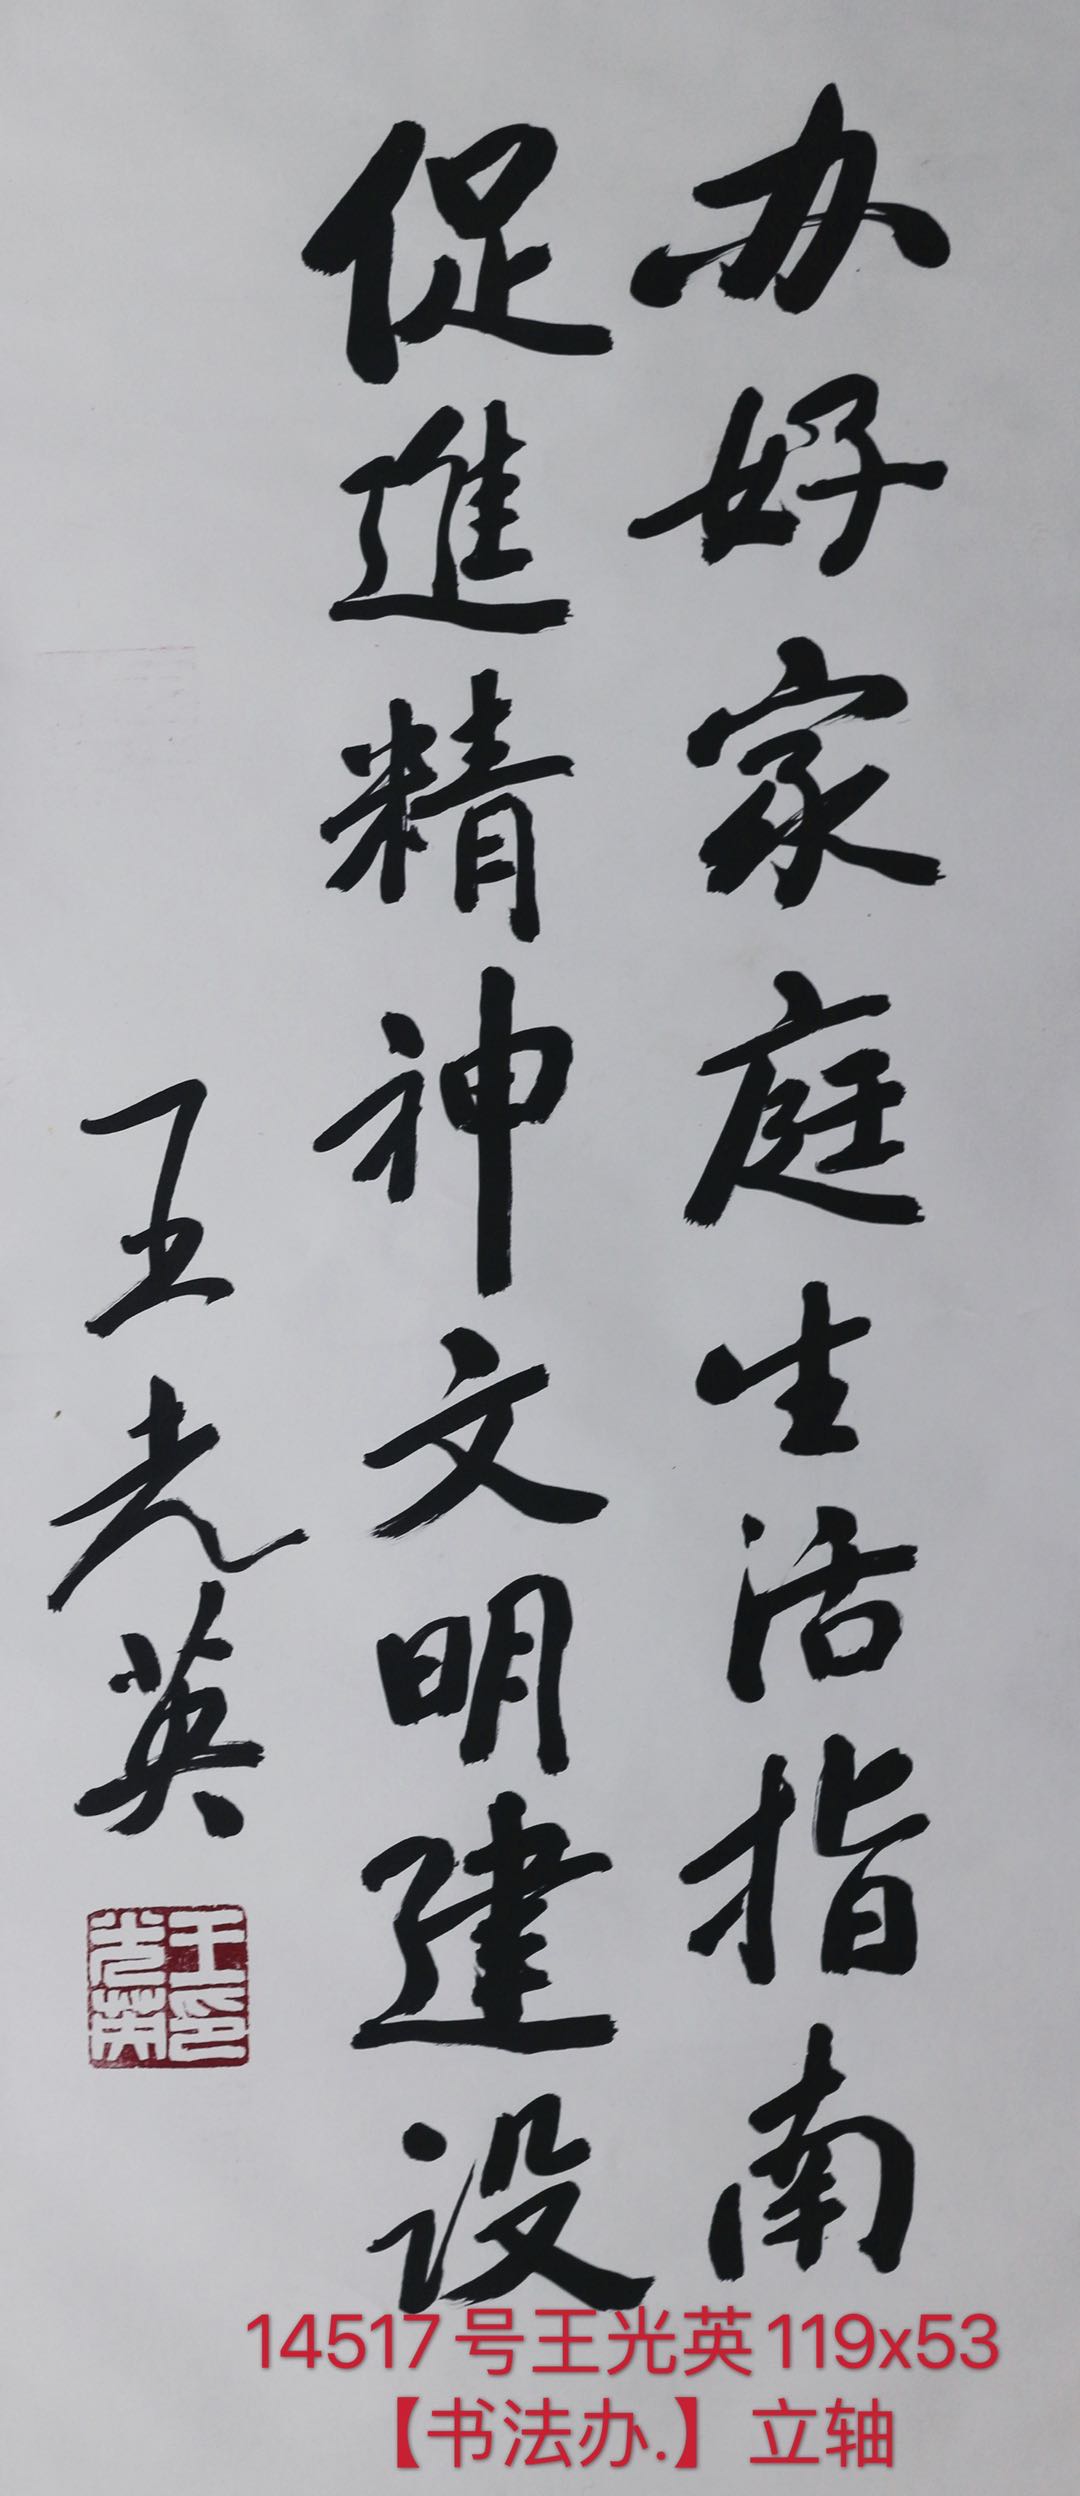 办好家庭生活指南
促進精神文明建设
王光英
王光英印
14517号王光英119x53
【书法办.】立轴